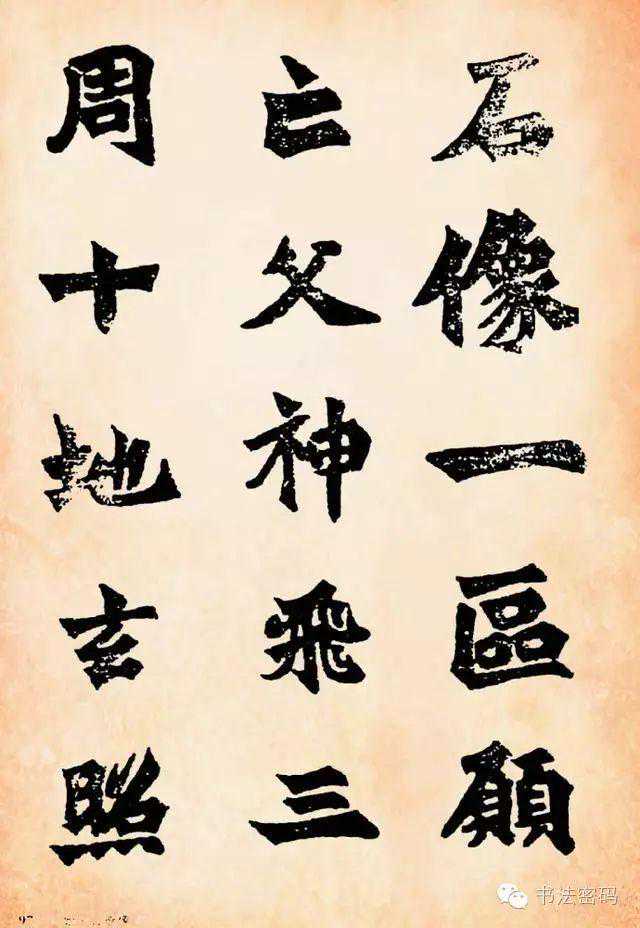 石像一區願
亡父神飛三
周十地玄照
97
书法密码